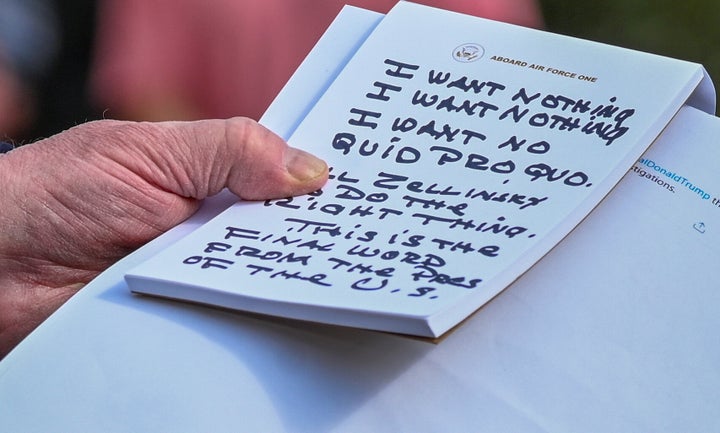 ABOARD AIR FORCE ONE
I WANT NOTHING
I WANT NOTHING
I WANT NO
QUID PRO QUO.
LL ZELLINSKY
DO THE
RIGHT THING.
THIS IS THE
FINAL WORD
FROM THE PRES
OF THE U.S.
alDonaldTrump th
stigations.